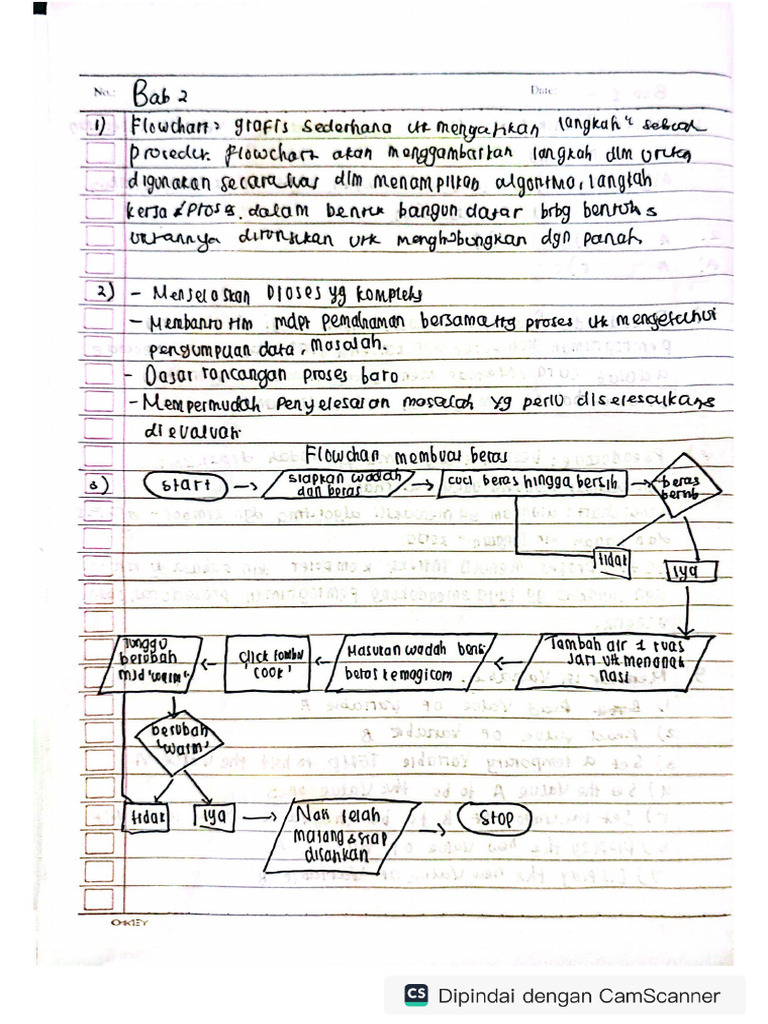 No.:
Date:
Bab 2
1) Flowchart > grafis sederhana utk mengartikan langkah" sebuah
prosedur. Flowchart akan menggambarkan langkah dlm urutan
digunakan secara luas dlm menampilkan algoritma, langkah
kerja & proses. dalam bentuk bangun datar brbg bentuk &
urutannya ditunjukan utk menghubungkan dgn panah.
2) - Menjelaskan proses yg kompleks
- Membantu tim mdpt pemahaman bersama ttg proses utk mengetahui
pengumpulan data, masalah.
- Dasar rancangan proses baru
- Mempermudah penyelesaian masalah yg perlu diselesaikan &
dievaluah
Flowchart membuat beras
3)
start
siapkan wadah
dan beras
cuci beras hingga bersih
beras
bersih
tidak
iya
Tambah air 1 ruas
jari utk menanak
nasi
Masukan wadah berisi
beras ke magicom.
Click tombol
'cook'
Tunggu
berubah
mjd 'warm'
berubah
'warm'
tidak
iya
Nasi telah
matang & siap
disantkan
Stop
OKEY
CS Dipindai dengan CamScanner